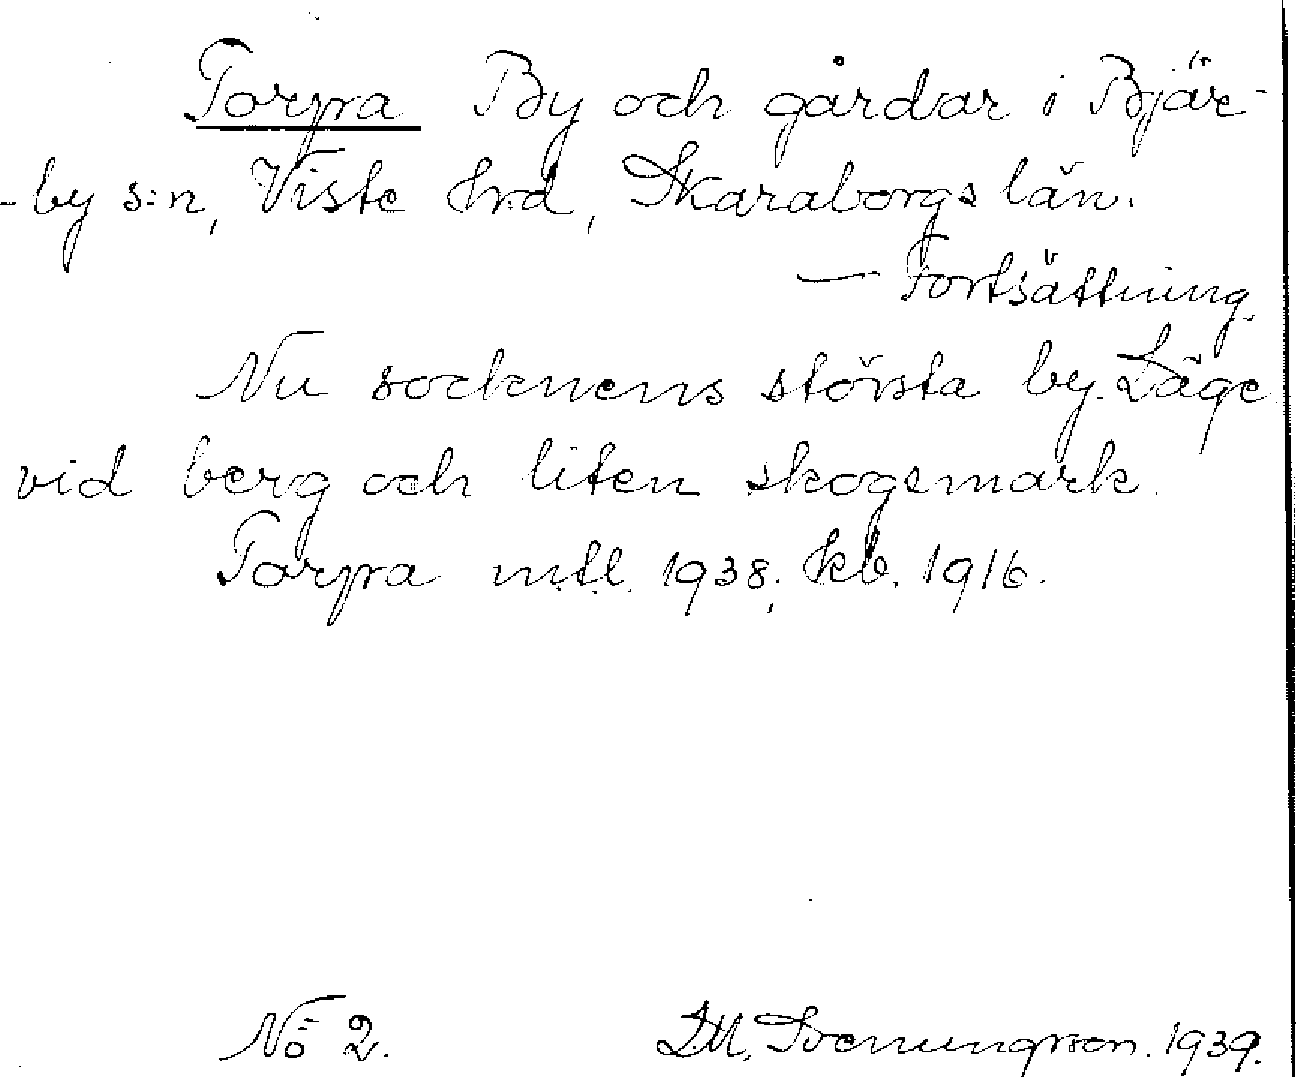 Torpa By och gårdar i Bjär-
-by s:n, Viste hrd, Skaraborgs län.
— Fortsättning.
Nu socknens största by. Läge
vid berg och liten skogsmark.
Torpa mtl. 1938; kb. 1916.
No 2. D.M. Svenungsson. 1939.